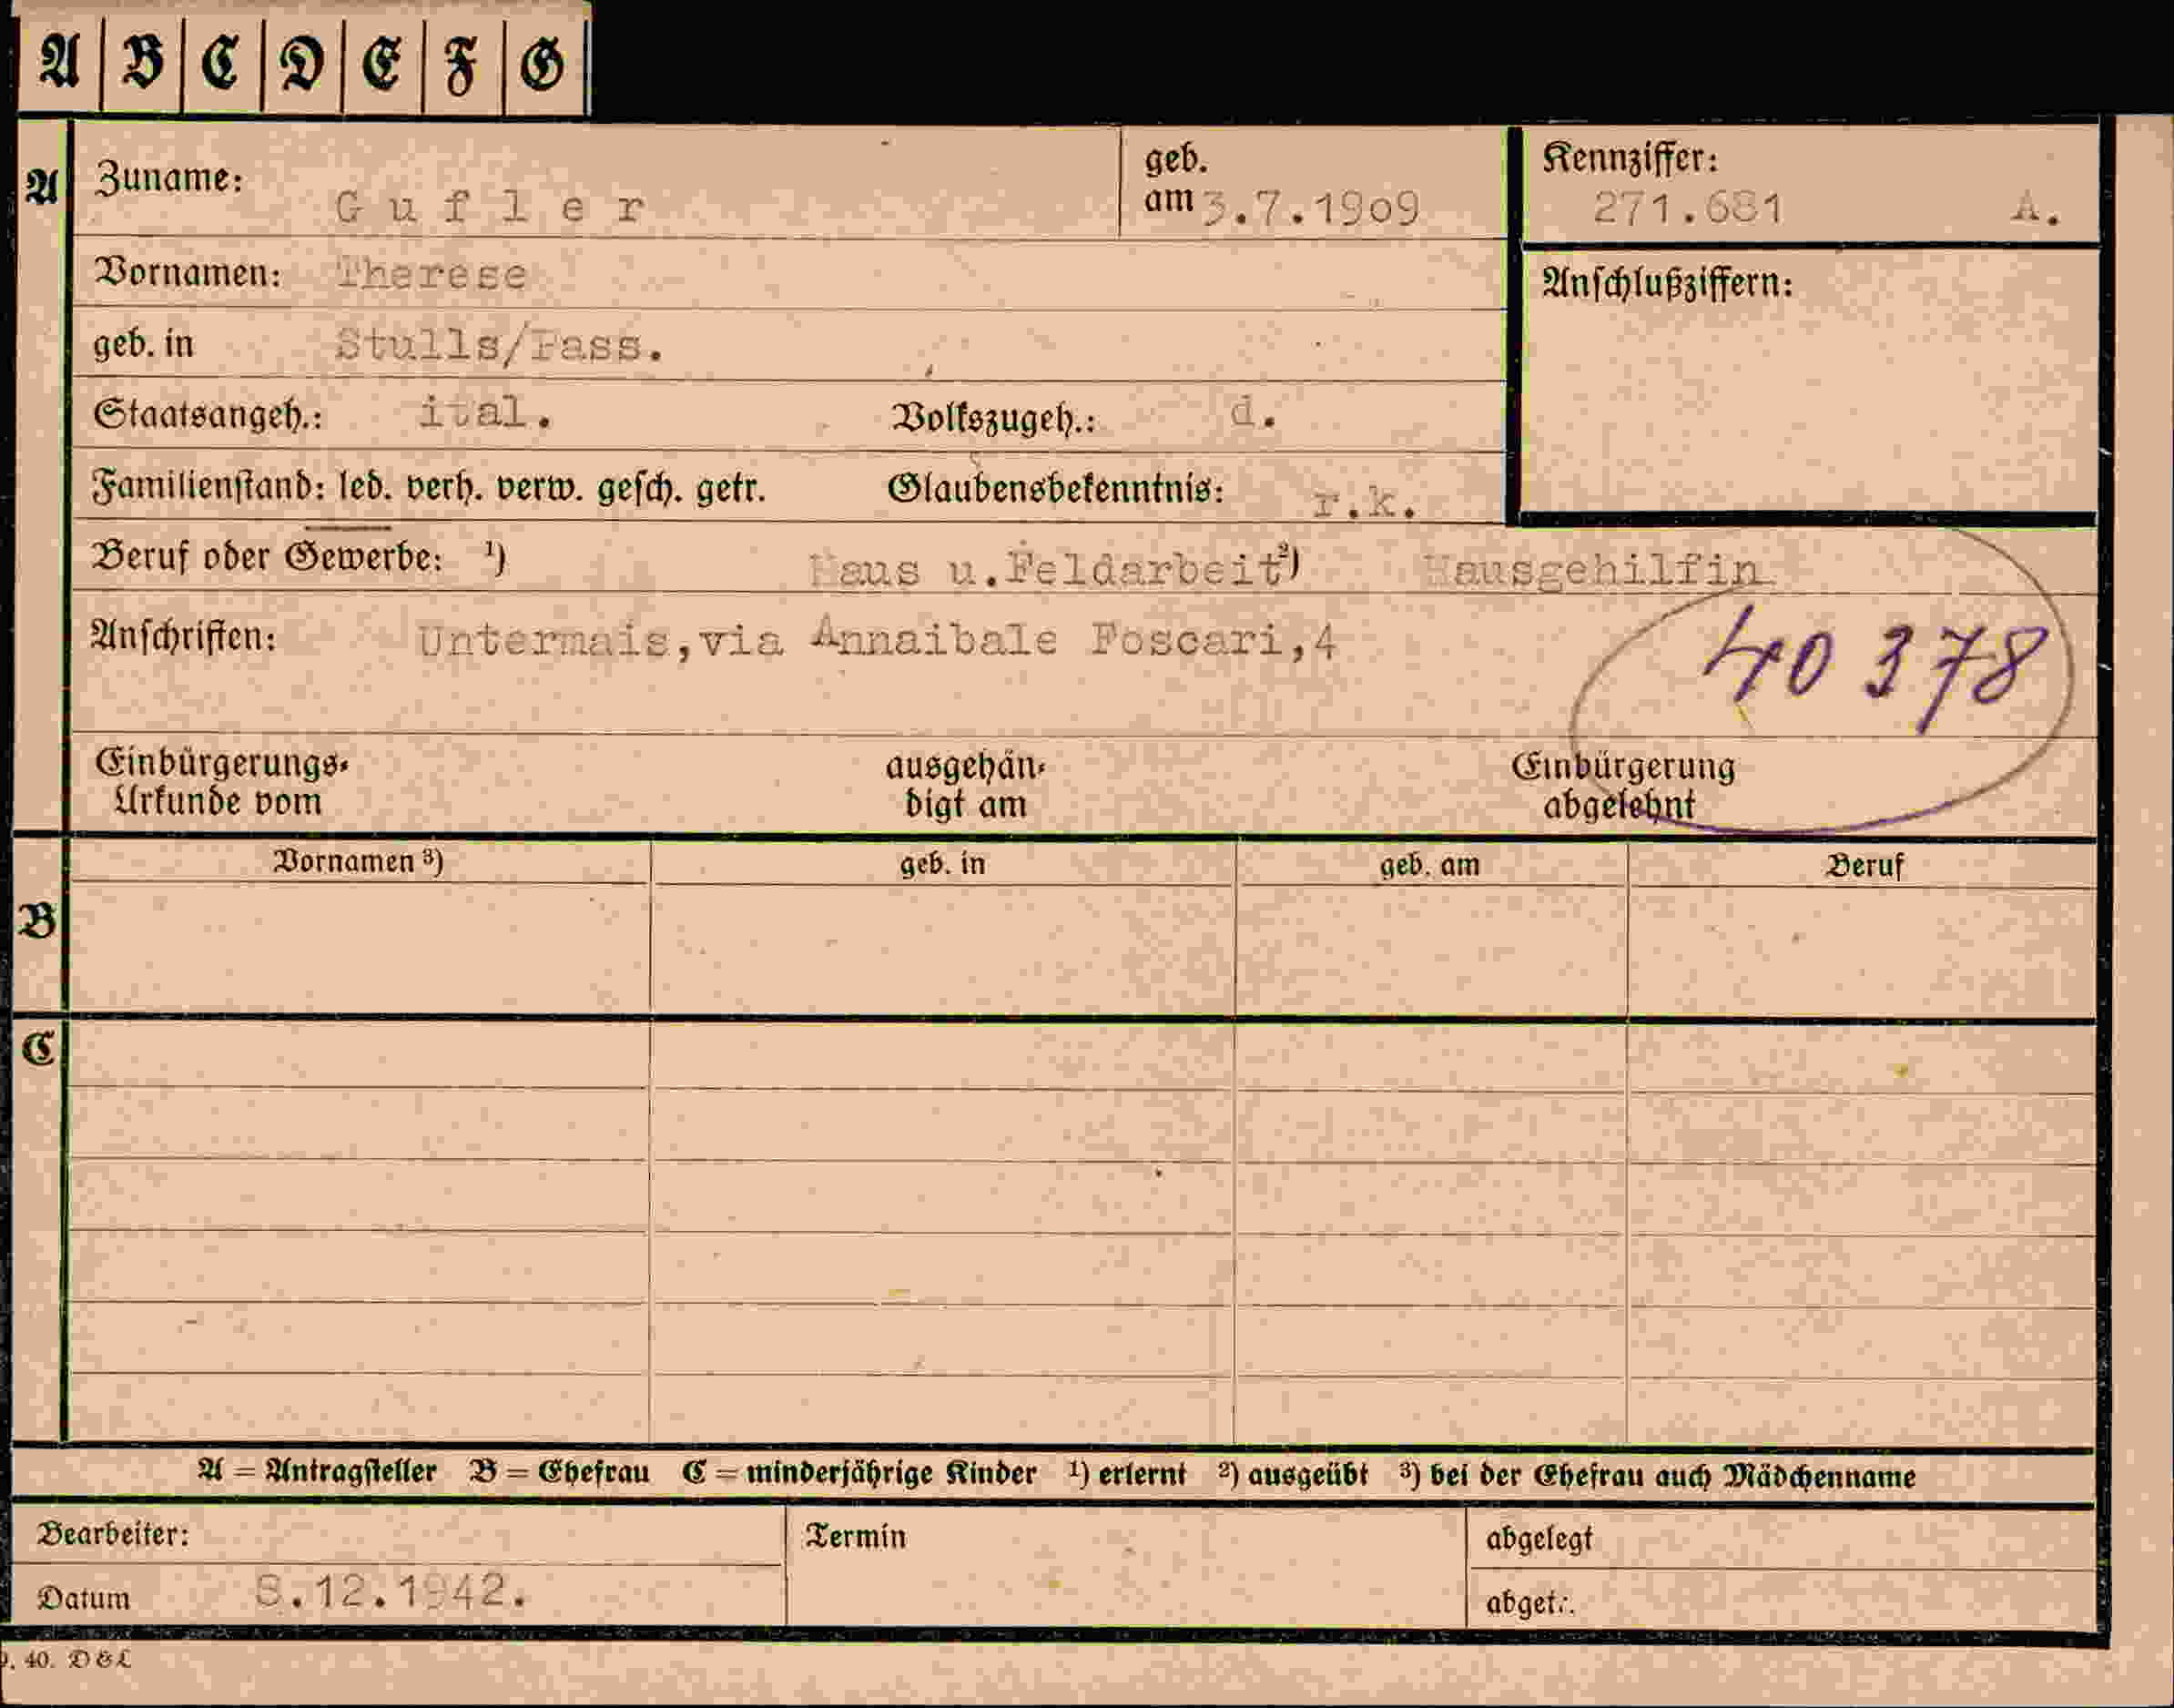 A B C D E F G
A Zuname: Gufler geb. am 3.7.1909 Kennziffer: 271.681 A.
Vornamen: Therese Anschlußziffern:
geb. in Stulls/Pass.
Staatsangeh.: ital. Volkszugeh.: d.
Familienstand: led. verh. verw. gesch. getr. Glaubensbekenntnis: r.k.
Beruf oder Gewerbe: ¹) Haus u.Feldarbeit ²) Hausgehilfin
Anschriften: Untermais,via Annaibale Foscari,4
40 378
Einbürgerungs-Urkunde vom ausgehändigt am Einbürgerung abgelehnt
Vornamen ³) geb. in geb. am Beruf
B
C
A = Antragsteller B = Ehefrau C = minderjährige Kinder ¹) erlernt ²) ausgeübt ³) bei der Ehefrau auch Mädchenname
Bearbeiter: Termin abgelegt
Datum 8.12.1942. abget.:
40. D & L